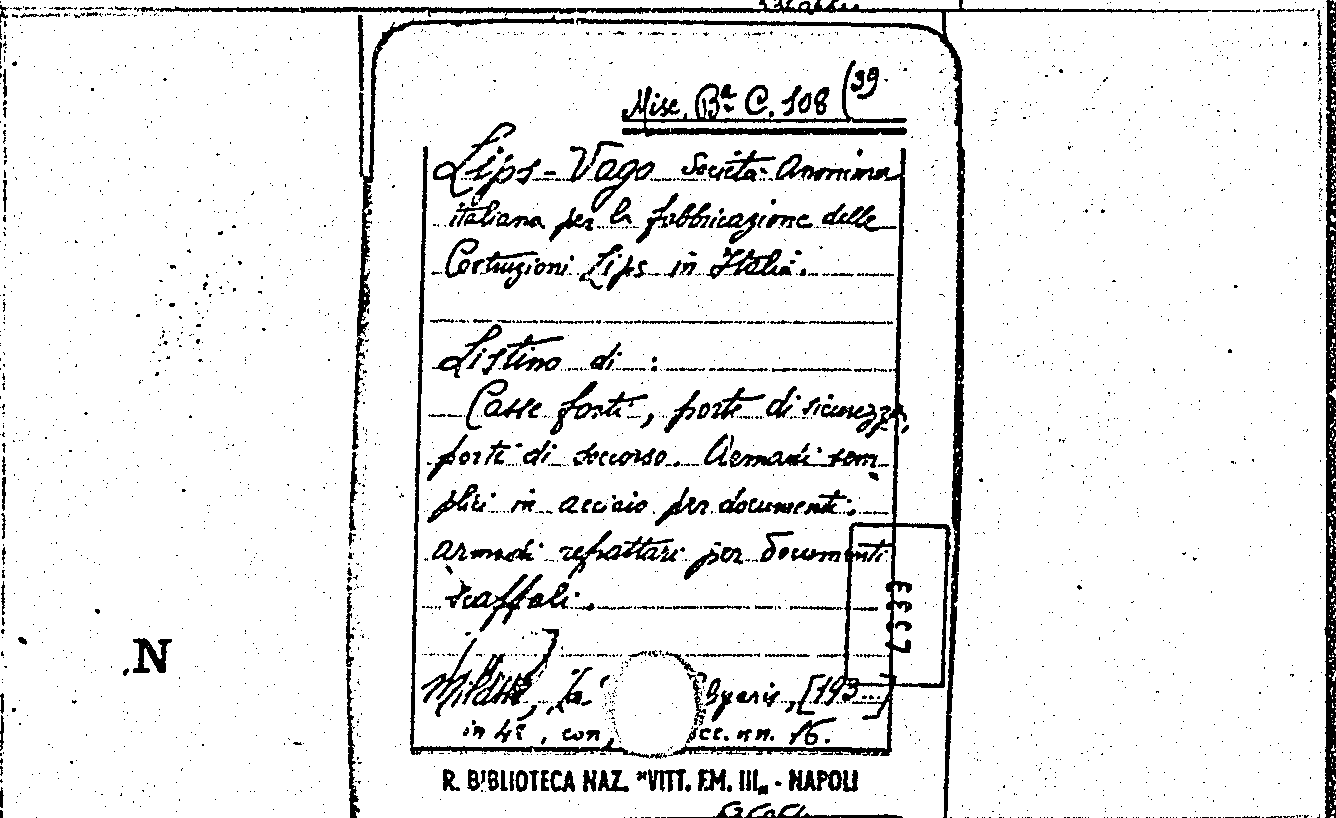 Misc. Bª C. 108 (39
Lips-Vago Società Anonima
italiana per la fabbricazione delle
Costruzioni Lips in Italia.
Listino di :
Casse forti, porte di sicurezza,
porte di soccorso. Armadi sem
plici in acciaio per documenti.
armadi refrattari per documenti
scaffali.
Milano, [193...]
in 4º, con nn. 16.
N
R. BIBLIOTECA NAZ. "VITT. EM. III„ - NAPOLI